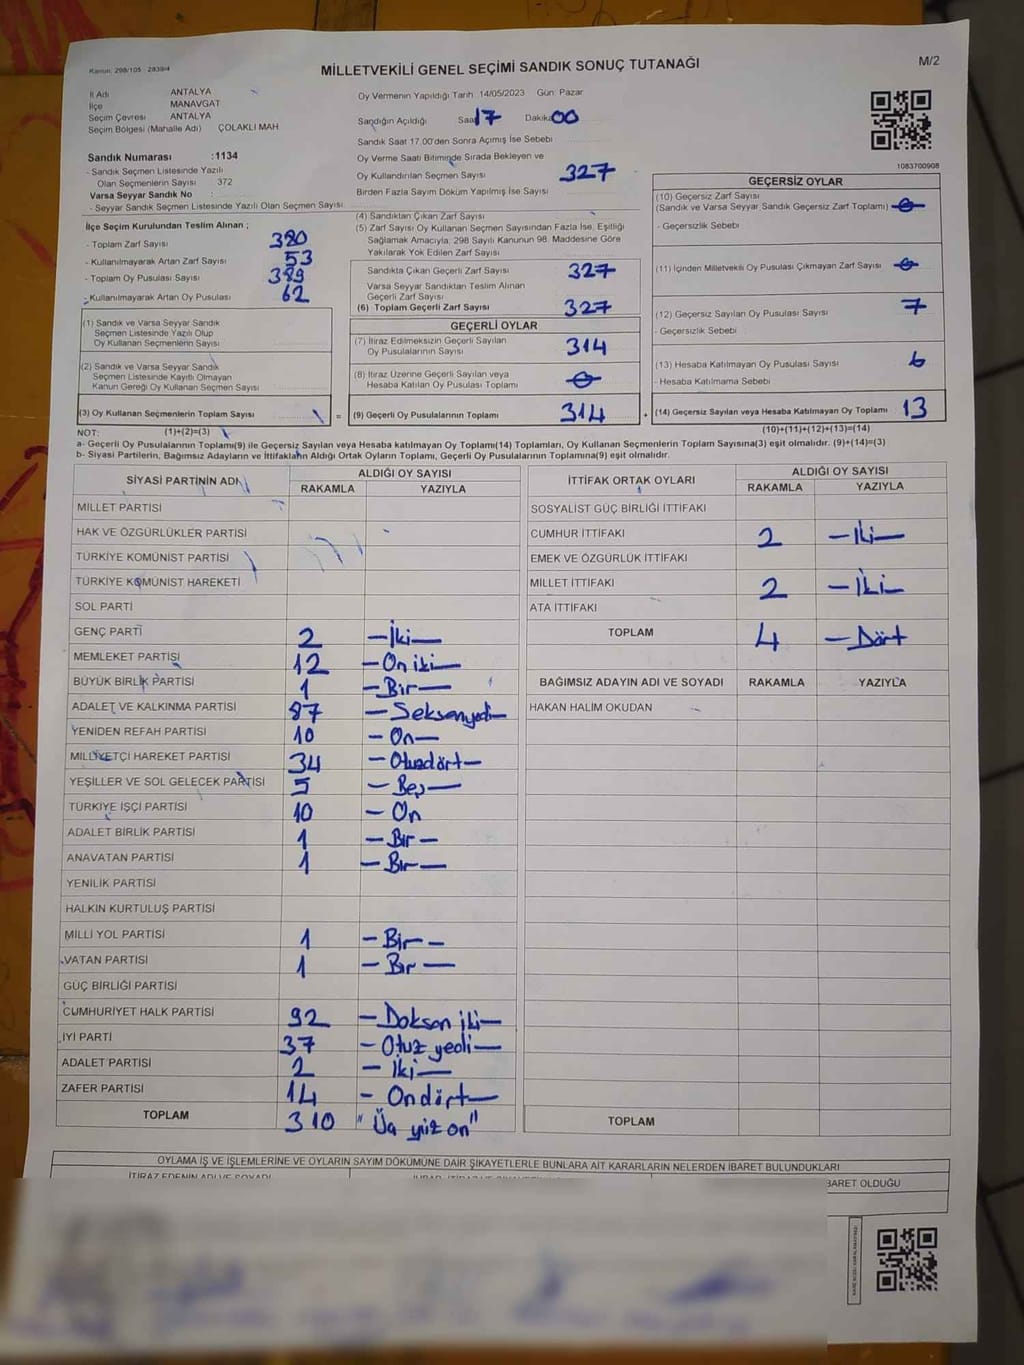 Kanun: 298/105 - 2839/4
MİLLETVEKİLİ GENEL SEÇİMİ SANDIK SONUÇ TUTANAĞI
M/2
İl Adı ANTALYA
İlçe MANAVGAT
Seçim Çevresi ANTALYA
Seçim Bölgesi (Mahalle Adı) ÇOLAKLI MAH
Sandık Numarası :1134
- Sandık Seçmen Listesinde Yazılı
Olan Seçmenlerin Sayısı 372
Varsa Seyyar Sandık No :
- Seyyar Sandık Seçmen Listesinde Yazılı Olan Seçmen Sayısı:
Oy Vermenin Yapıldığı Tarih: 14/05/2023 Gün: Pazar
Sandığın Açıldığı Saat 17 Dakika 00
Sandık Saat 17.00'den Sonra Açımış İse Sebebi
Oy Verme Saati Bitiminde Sırada Bekleyen ve
Oy Kullandırılan Seçmen Sayısı 327
Birden Fazla Sayım Döküm Yapılmış İse Sayısı
1083700908
İlçe Seçim Kurulundan Teslim Alınan ;
- Toplam Zarf Sayısı 380
- Kullanılmayarak Artan Zarf Sayısı 53
- Toplam Oy Pusulası Sayısı 389
- Kullanılmayarak Artan Oy Pusulası 62
(1) Sandık ve Varsa Seyyar Sandık
Seçmen Listesinde Yazılı Olup
Oy Kullanan Seçmenlerin Sayısı
(2) Sandık ve Varsa Seyyar Sandık
Seçmen Listesinde Kayıtlı Olmayan
Kanun Gereği Oy Kullanan Seçmen Sayısı
(3) Oy Kullanan Seçmenlerin Toplam Sayısı =
(1)+(2)=(3)
(4) Sandıktan Çıkan Zarf Sayısı
(5) Zarf Sayısı Oy Kullanan Seçmen Sayısından Fazla İse, Eşitliği
Sağlamak Amacıyla, 298 Sayılı Kanunun 98. Maddesine Göre
Yakılarak Yok Edilen Zarf Sayısı
Sandıkta Çıkan Geçerli Zarf Sayısı 327
Varsa Seyyar Sandıktan Teslim Alınan
Geçerli Zarf Sayısı
(6) Toplam Geçerli Zarf Sayısı 327
GEÇERLİ OYLAR
(7) İtiraz Edilmeksizin Geçerli Sayılan
Oy Pusulalarının Sayısı 314
(8) İtiraz Üzerine Geçerli Sayılan veya
Hesaba Katılan Oy Pusulası Toplamı 0
(9) Geçerli Oy Pusulalarının Toplamı 314 +
GEÇERSİZ OYLAR
(10) Geçersiz Zarf Sayısı
(Sandık ve Varsa Seyyar Sandık Geçersiz Zarf Toplamı) 0
- Geçersizlik Sebebi
(11) İçinden Milletvekili Oy Pusulası Çıkmayan Zarf Sayısı 0
(12) Geçersiz Sayılan Oy Pusulası Sayısı 7
- Geçersizlik Sebebi
(13) Hesaba Katılmayan Oy Pusulası Sayısı 6
- Hesaba Katılmama Sebebi
(14) Geçersiz Sayılan veya Hesaba Katılmayan Oy Toplamı 13
(10)+(11)+(12)+(13)=(14)
NOT:
a- Geçerli Oy Pusulalarının Toplamı(9) ile Geçersiz Sayılan veya Hesaba katılmayan Oy Toplamı(14) Toplamları, Oy Kullanan Seçmenlerin Toplam Sayısına(3) eşit olmalıdır. (9)+(14)=(3)
b- Siyasi Partilerin, Bağımsız Adayların ve İttifakların Aldığı Ortak Oyların Toplamı, Geçerli Oy Pusulalarının Toplamına(9) eşit olmalıdır.
SİYASİ PARTİNİN ADI ALDIĞI OY SAYISI
RAKAMLA YAZIYLA
MİLLET PARTİSİ
HAK VE ÖZGÜRLÜKLER PARTİSİ
TÜRKİYE KOMÜNİST PARTİSİ
TÜRKİYE KOMÜNİST HAREKETİ
SOL PARTİ
GENÇ PARTİ 2 – İki –
MEMLEKET PARTİSİ 12 – On iki –
BÜYÜK BİRLİK PARTİSİ 1 – Bir –
ADALET VE KALKINMA PARTİSİ 87 – Seksenyedi –
YENİDEN REFAH PARTİSİ 10 – On –
MİLLİYETÇİ HAREKET PARTİSİ 34 – Otuzdört –
YEŞİLLER VE SOL GELECEK PARTİSİ 5 – Beş –
TÜRKİYE İŞÇİ PARTİSİ 10 – On
ADALET BİRLİK PARTİSİ 1 – Bir –
ANAVATAN PARTİSİ 1 – Bir –
YENİLİK PARTİSİ
HALKIN KURTULUŞ PARTİSİ
MİLLİ YOL PARTİSİ 1 – Bir –
VATAN PARTİSİ 1 – Bir –
GÜÇ BİRLİĞİ PARTİSİ
CUMHURİYET HALK PARTİSİ 92 – Doksan iki –
İYİ PARTİ 37 – Otuz yedi –
ADALET PARTİSİ 2 – İki –
ZAFER PARTİSİ 14 – Ondört –
TOPLAM 310 "Üç yüz on"
İTTİFAK ORTAK OYLARI ALDIĞI OY SAYISI
RAKAMLA YAZIYLA
SOSYALİST GÜÇ BİRLİĞİ İTTİFAKI
CUMHUR İTTİFAKI 2 – İki –
EMEK VE ÖZGÜRLÜK İTTİFAKI
MİLLET İTTİFAKI 2 – İki –
ATA İTTİFAKI
TOPLAM 4 – Dört
BAĞIMSIZ ADAYIN ADI VE SOYADI RAKAMLA YAZIYLA
HAKAN HALİM OKUDAN
TOPLAM
OYLAMA İŞ VE İŞLEMLERİNE VE OYLARIN SAYIM DÖKÜMÜNE DAİR ŞİKAYETLERLE BUNLARA AİT KARARLARIN NELERDEN İBARET BULUNDUKLARI
İTİRAZ EDENİN ADI VE SOYADI
BARET OLDUĞU